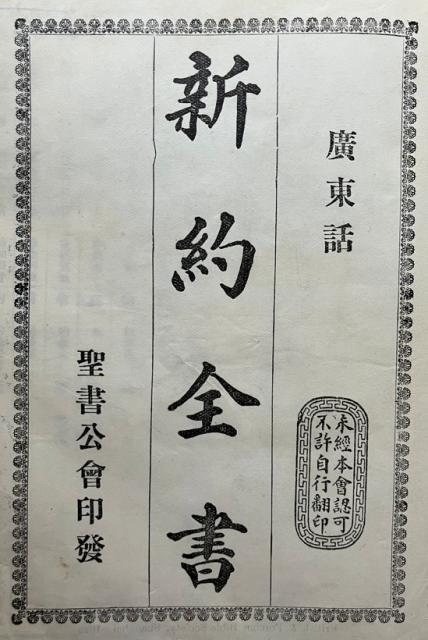 廣東話
未經本會認可
不許自行翻印
新約全書
聖書公會印發